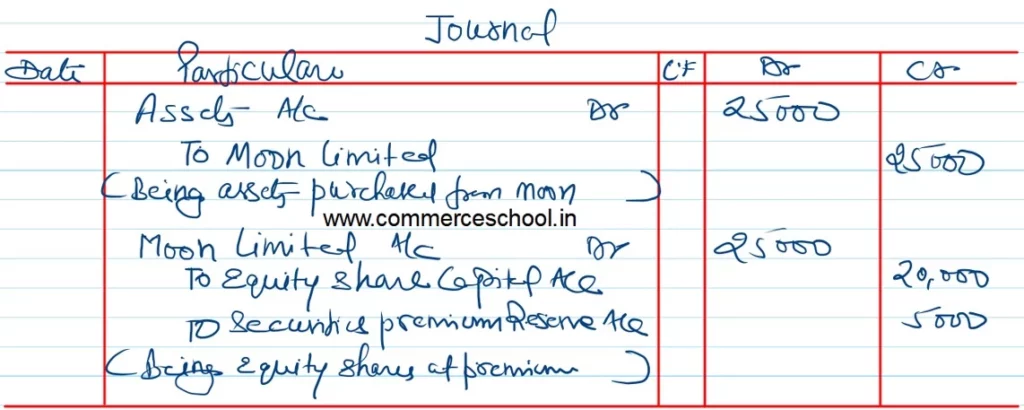 Journal
Date Particulars C'F Dr Cr
Assets A/c Dr 25000
To Moon Limited 25000
(Being assets purchased from Moon)
www.commerceschool.in
Moon Limited A/c Dr 25000
To Equity Share Capital A/c 20,000
To Securities premium Reserve A/c 5000
(Being Equity Shares at premium)